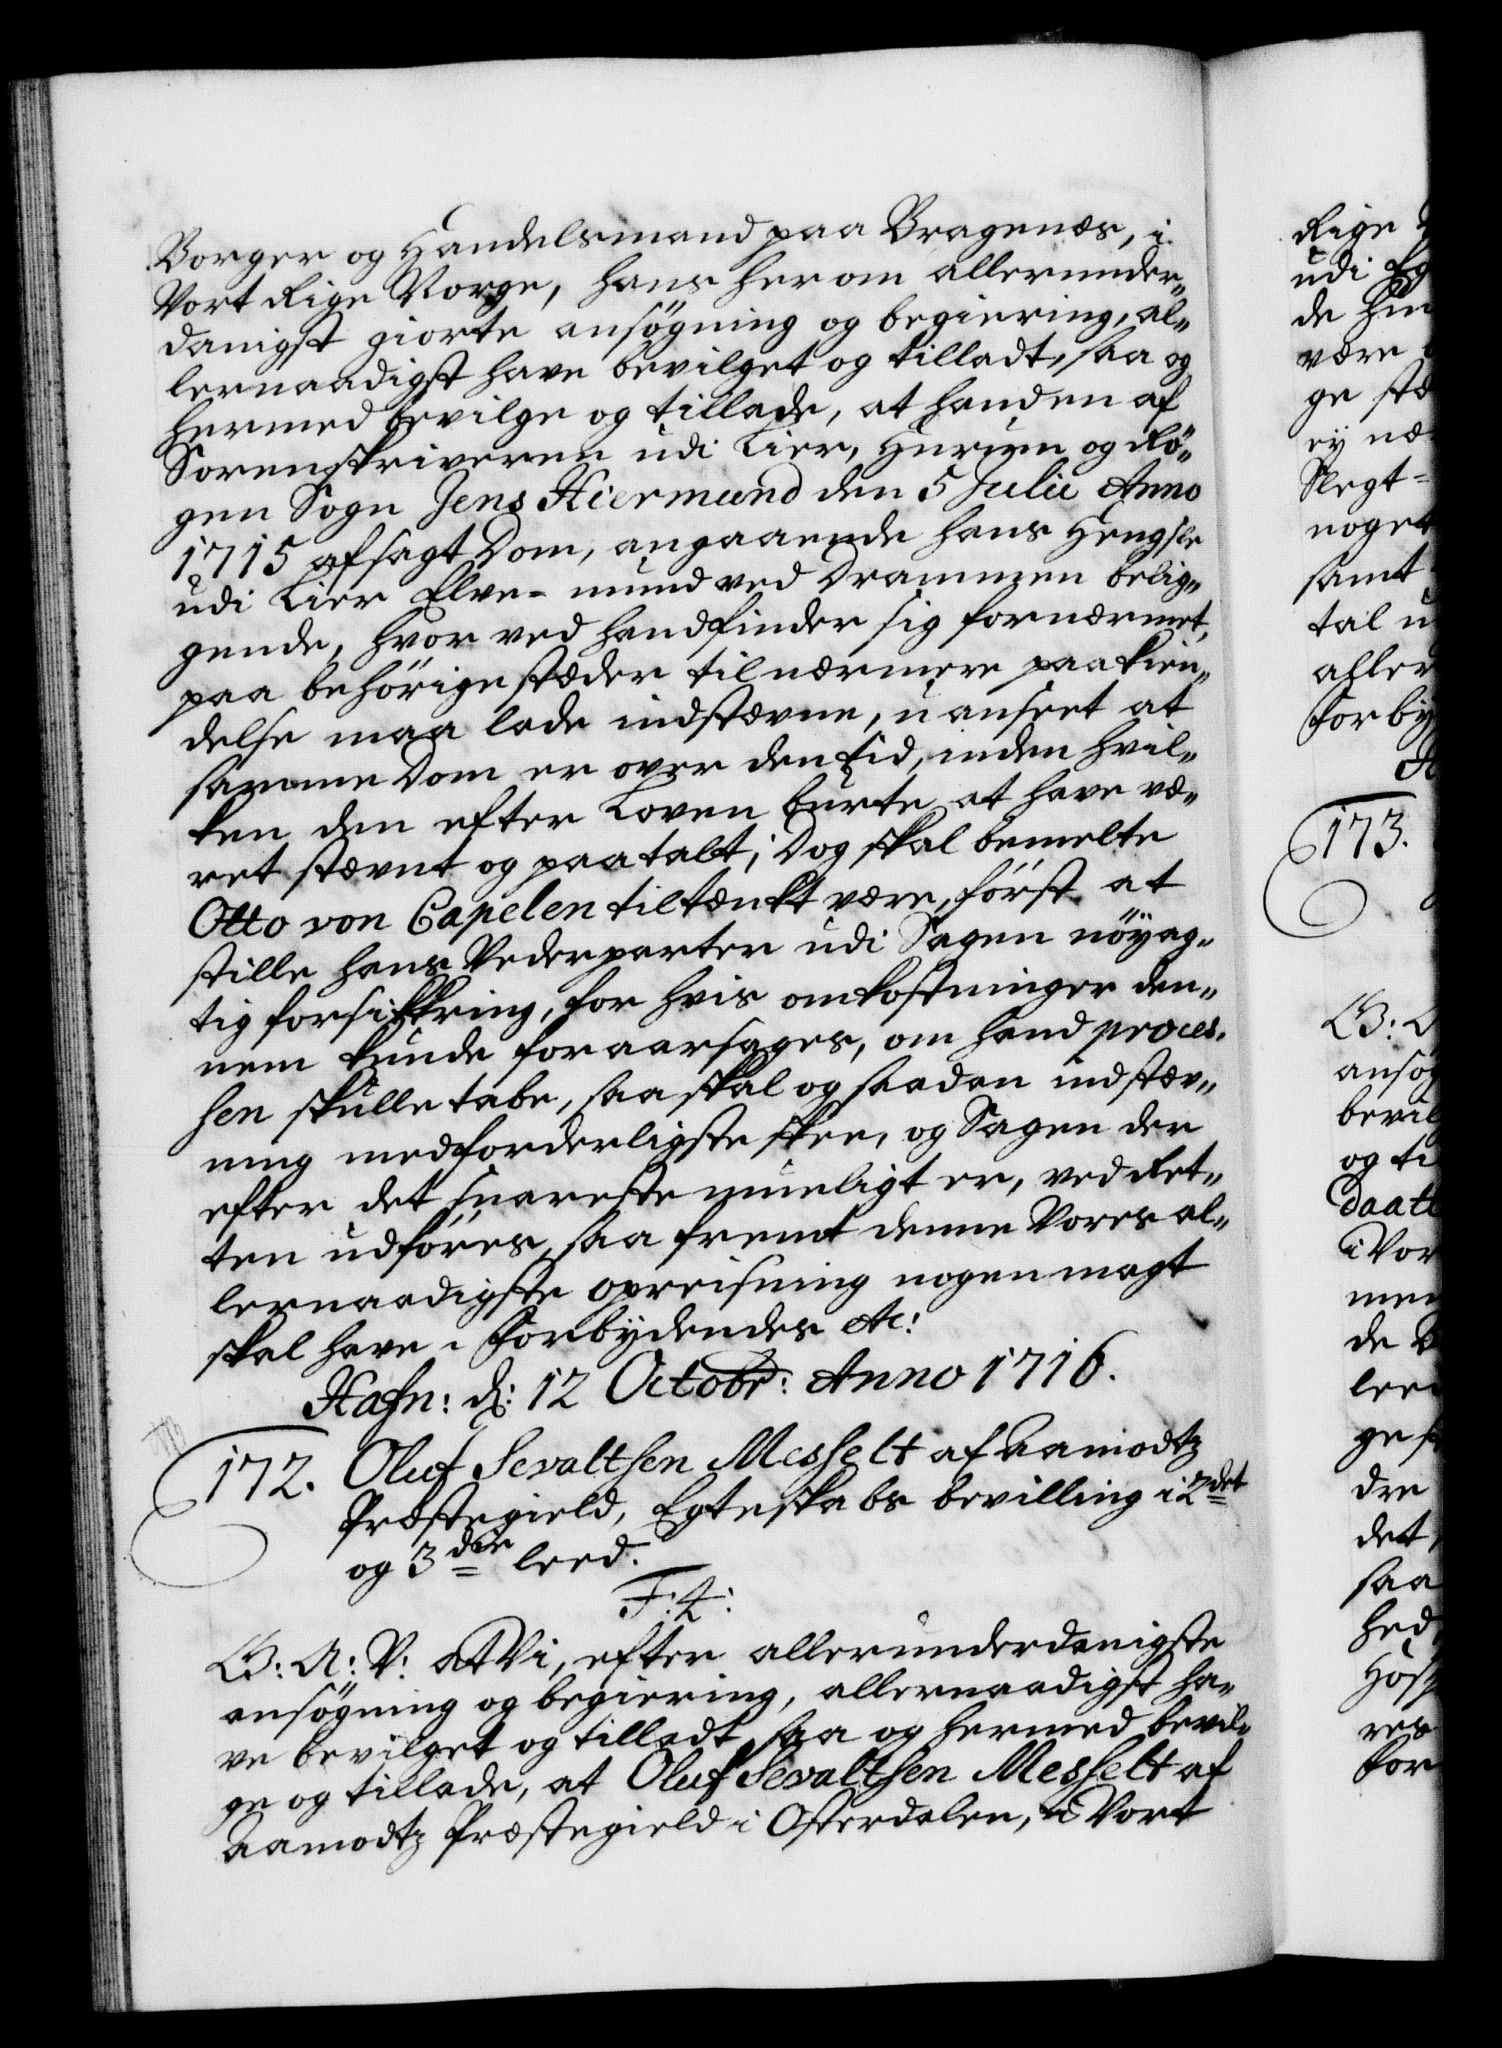 Borger og Handelsmand paa Bragenæs, i
Vort Rige Norge, hans her om allerunder„
danigst giorte ansögning og begiering, al„
lernaadigst have bevilget og tilladt, saa og
hermed bevilge og tillade, at hand en af
Sorenskriveren udi Lier, Hurum og Rö„
gen Sogn Jens Hiermund den 5 Julii Anno
1715 afsagt Dom, angaaende hans Hengsle
udi Lier Elve= mund ved Drammen belig„
gende, hvor ved hand finder sig fornærmet,
paa behörige stæder til nærmere paakien„
delse maa lade indstævne, uanseet at
samme Dom er over den tid, inden hvil„
ken den efter Loven burte at have væ„
ret stævnt og paatalt; Dog skal bemelte
Otto von Capelen tiltænkt være, först at
stille hans Vederparter udi Sagen nöyag„
tig forsikkring, for hvis omkostninger den„
nem kunde foraarsages, om hand proces„
sen skulle tabe, saa skal og saadan indstæv„
ning med forderligste skee, og Sagen der
efter det snareste mueligt er, ved Ret„
ten udföres, saa fremt denne Vores al„
lernaadigste opreisning nogen magt
skal have. Forbydendes etc:
Hafn: d: 12 Octobr: Anno 1716.
172. Oluf Sevaltsen Messelt af Aamodtz
Præstegield, Egteskabs bevilling i 2det
og 3die leed.
F: 4:
G: A: V: at Vi, efter allerunderdanigste
ansögning og begiering, allernaadigst ha„
ve bevilget og tilladt, saa og hermed bevil„
ge og tillade, at Oluf Sevaltsen Messelt af
Aamodtz Præstegield i Osterdalen, i Vort
Rige
udi Eg
de hin
være
ge stæ
ey næ
Slegt=
noget
samt
tal u
aller
Forby
173.
G: A
ansög
bevil
og ti
Daatt
i Vor
men
de
leed
ge
dre
det
saa
hed
Hosp
res
For